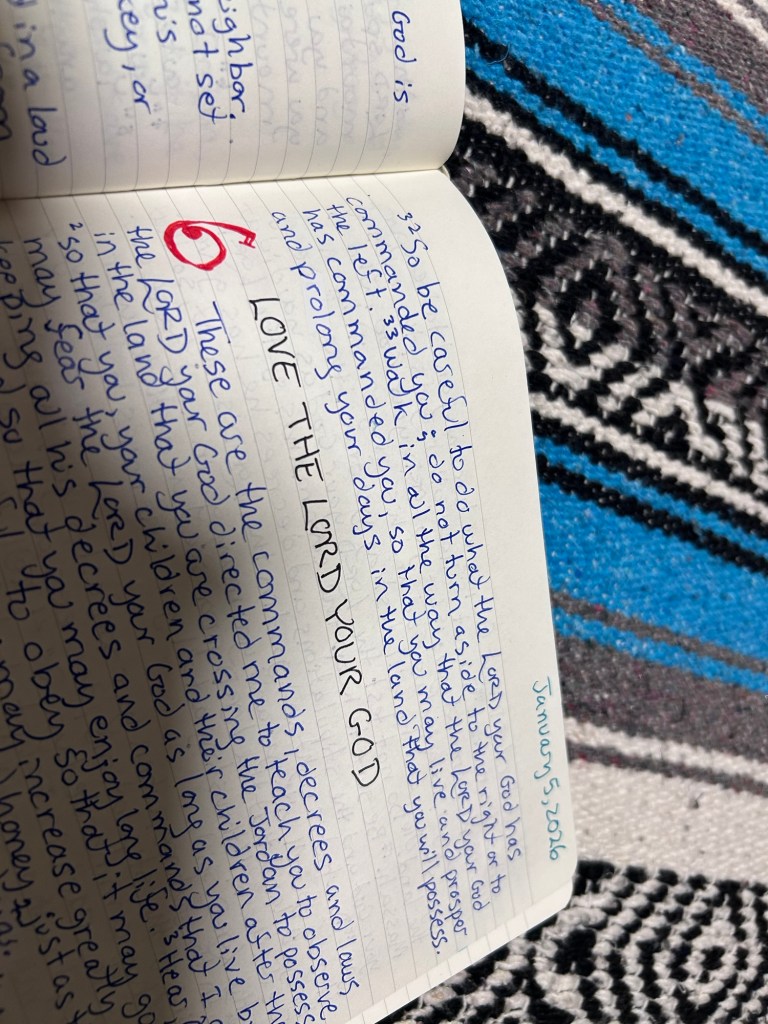 God is
ighbor.
not set
his
key, or
t in a loud
January 5, 2026
32 So be careful to do what the LORD your God has
commanded you; do not turn aside to the right or to
the left. 33 Walk in all the way that the LORD your God
has commanded you, so that you may live and prosper
and prolong your days in the land that you will possess.
6
LOVE THE LORD YOUR GOD
These are the commands, decrees and laws
the LORD your God directed me to teach you to observe
in the land that you are crossing the Jordan to possess
2 so that you, your children and their children after th
may fear the LORD your God as long as you live b
keeping all his decrees and commands that I
so that you may enjoy long life. 3 Hear
to obey so that it may go
may increase greatly
honey, just as t